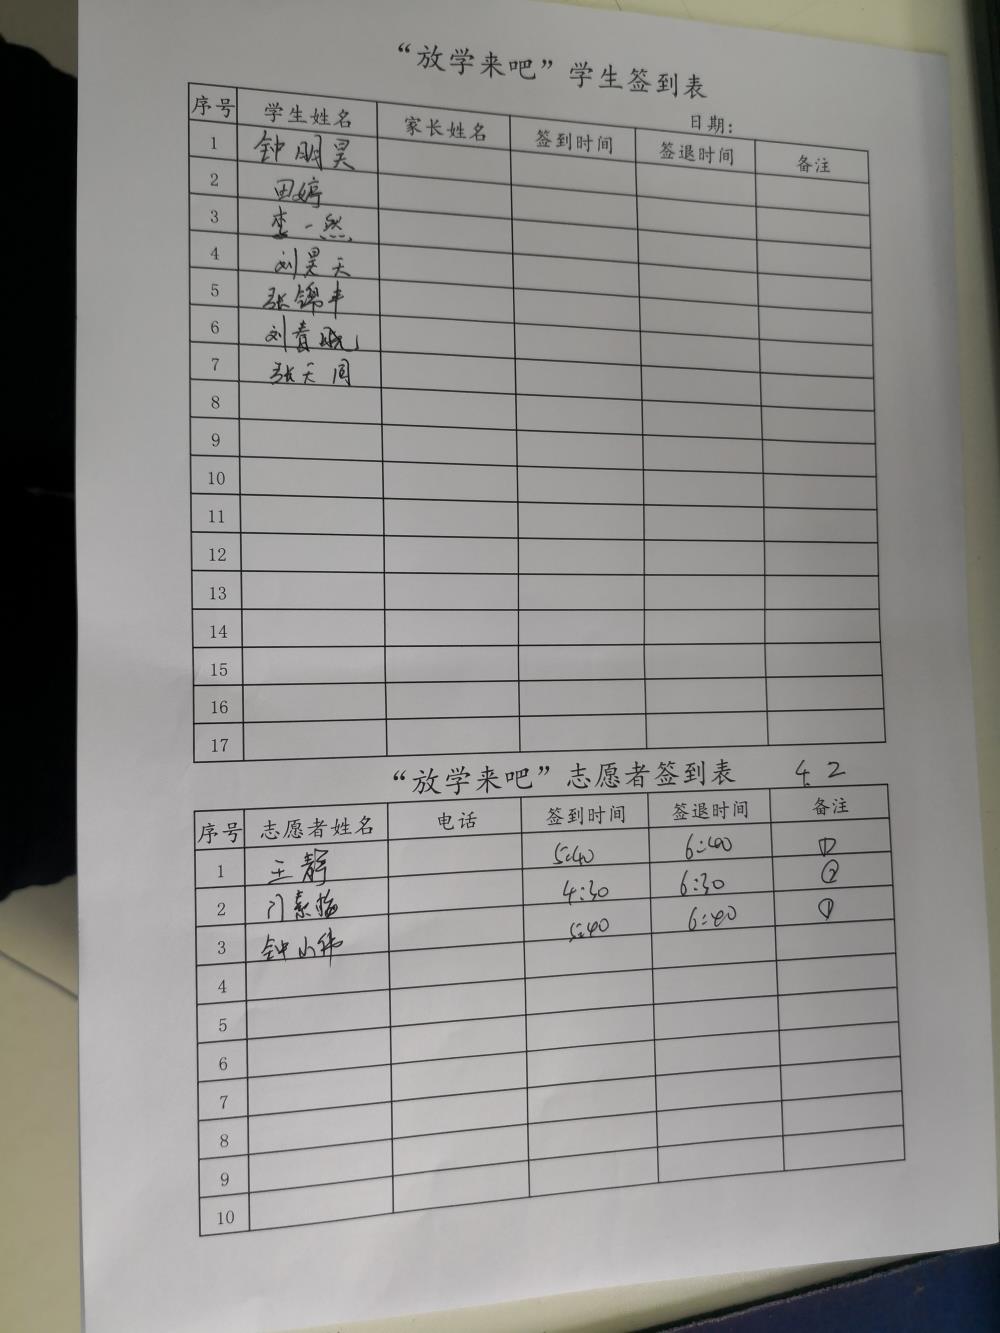 “放学来吧”学生签到表
日期:
序号 学生姓名 家长姓名 签到时间 签退时间 备注
1 钟明昊
2 田婷
3 李一然
4 刘昊天
5 张锦丰
6 刘青
7 张天同
8
9
10
11
12
13
14
15
16
17
“放学来吧”志愿者签到表 4.2
序号 志愿者姓名 电话 签到时间 签退时间 备注
1 王静 5:40 6:40 ①
2 门素梅 4:30 6:30 ②
3 钟小伟 5:40 6:40 ①
4
5
6
7
8
9
10